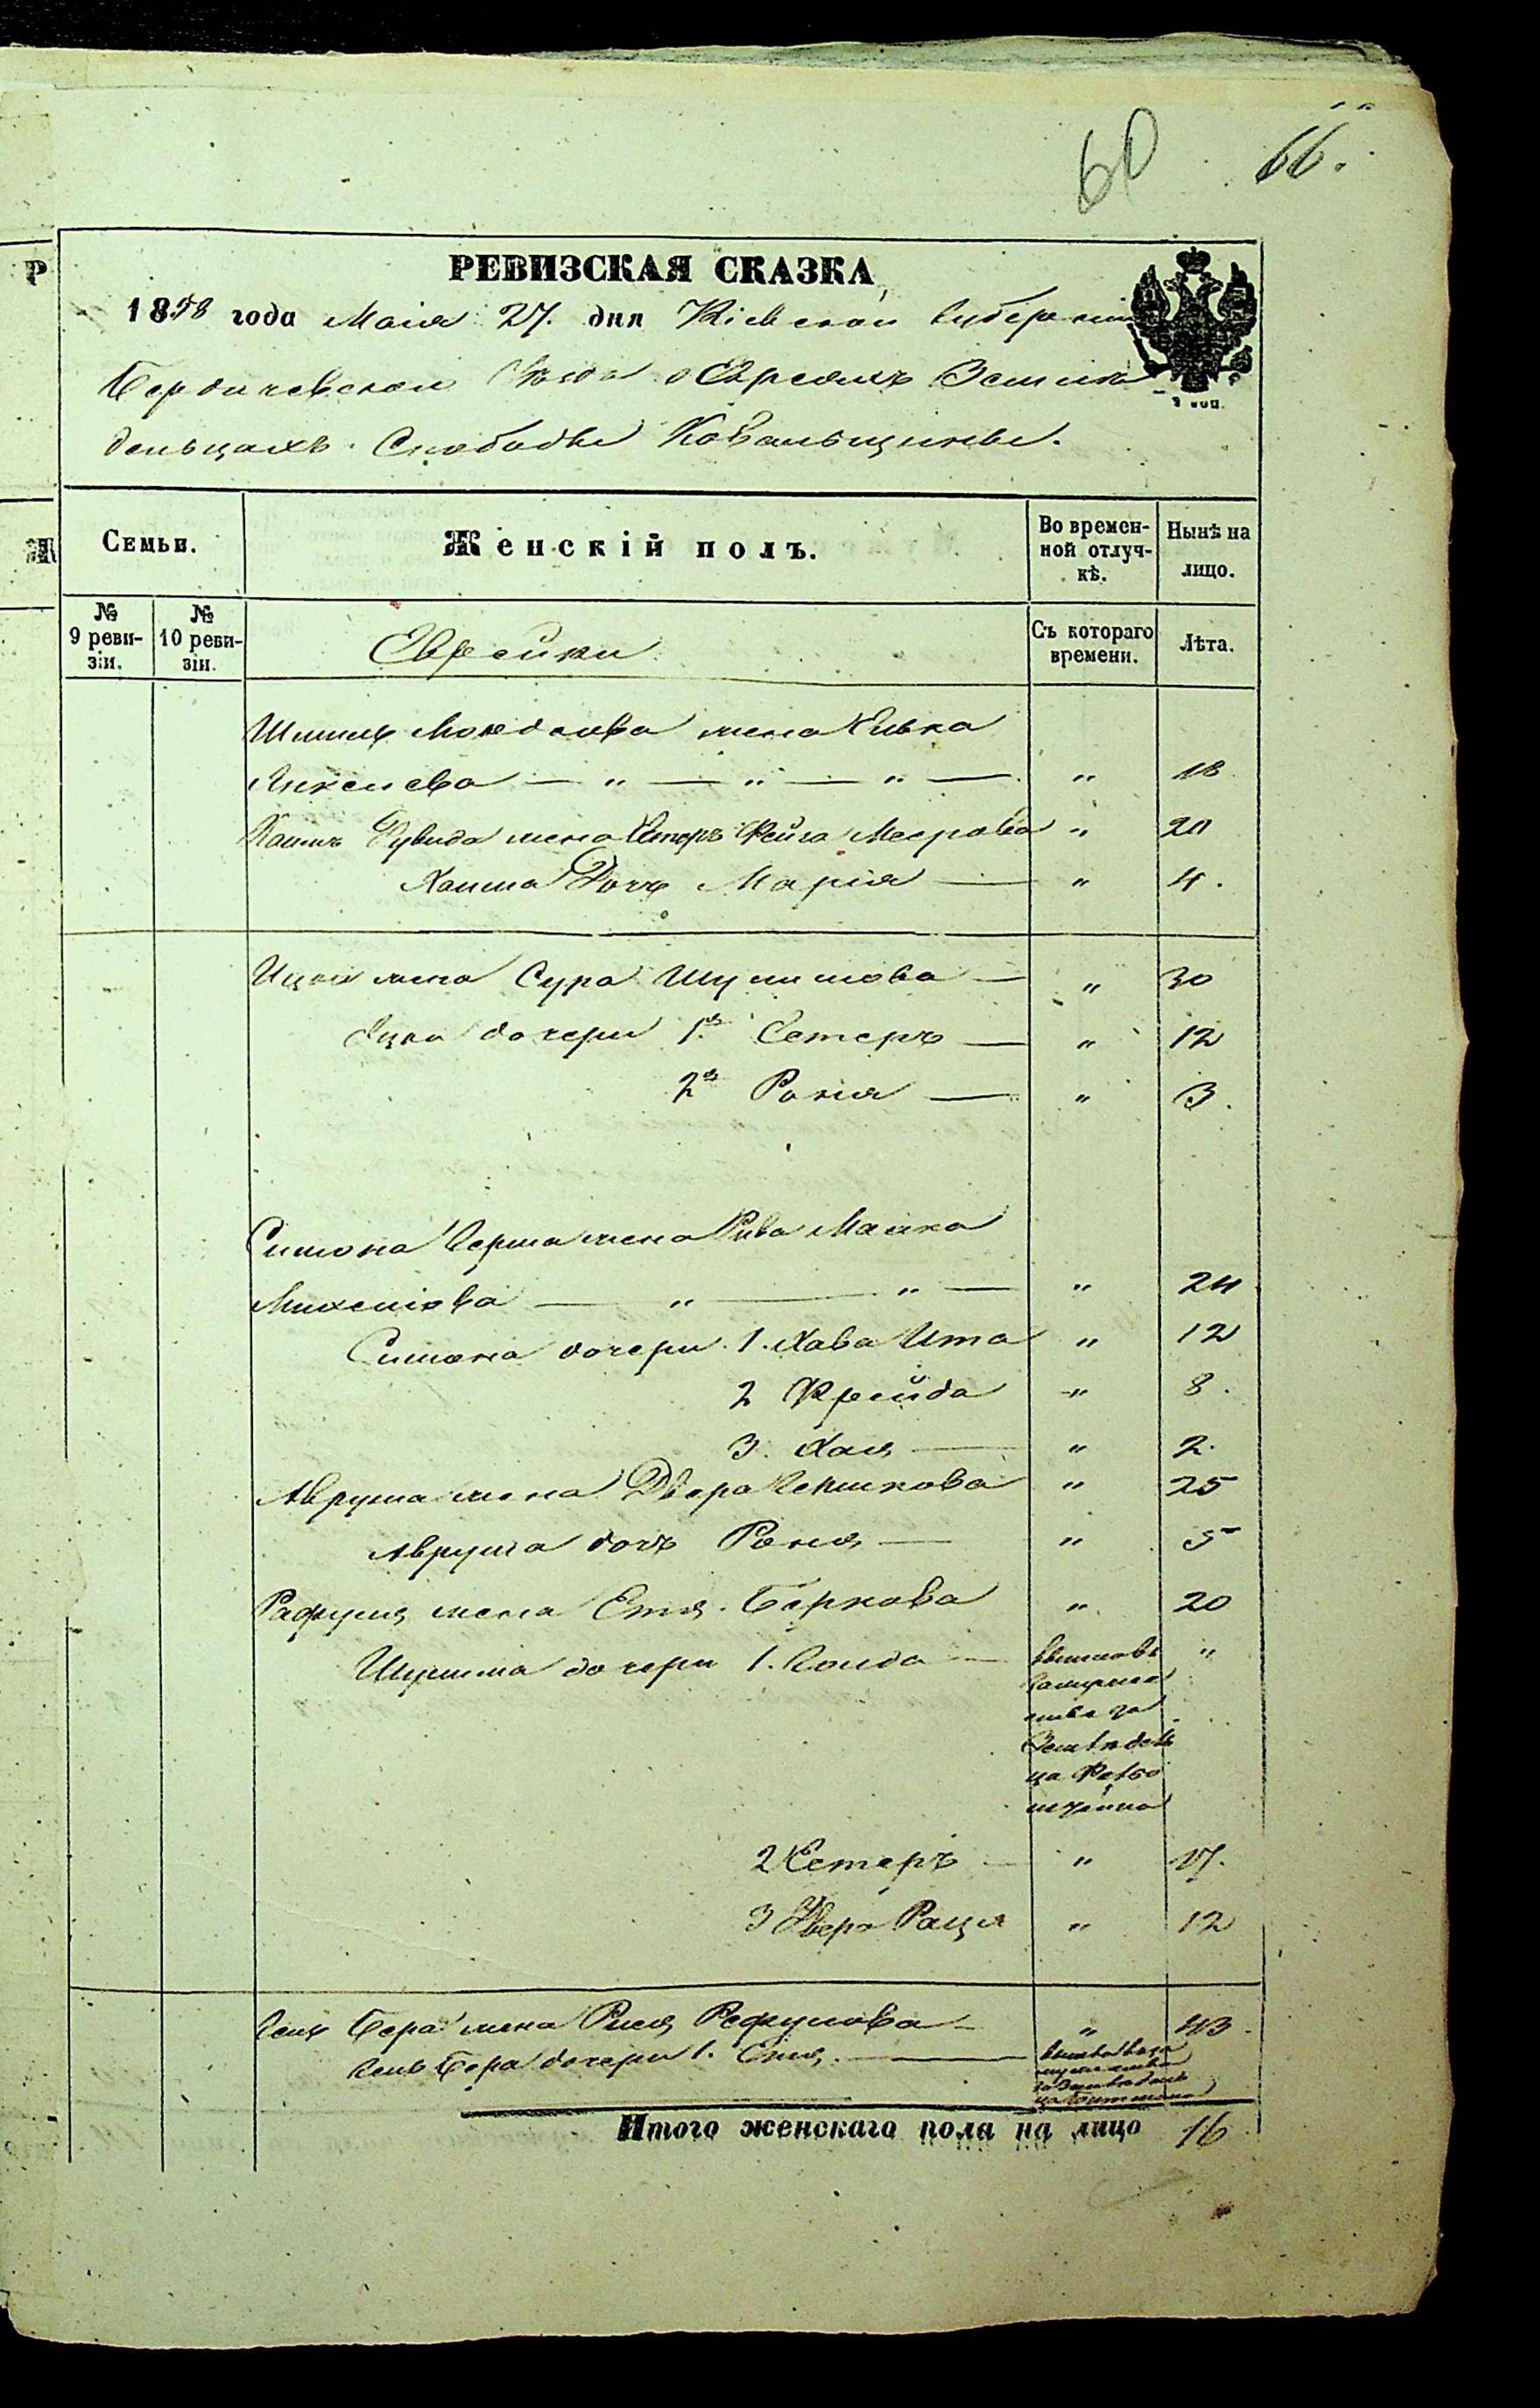 60 66.
Р
РЕВИЗСКАЯ СКАЗКА,
1858 года Маія 27. дня Кіевской Губерніи
Бердичевскаго Уѣзда о Евреяхъ Землевла
дельцахъ Слободы Ковальщины.
Семьи.
Женскій полъ.
Во времен-
ной отлуч-
кѣ.
Нынѣ на
лицо.
№
9 реви-
зіи.
№
10 реви-
зіи.
Еврейки
Съ котораго
времени.
Лѣта.
жена Сивка
Янкелева — " — " — " — " 18
Хаима Дувида жена Естеръ Фейга Меерова " 20
Хаима Дочь Марія — " 4.
Ицка жена Сура Шулимова — " 30
Ицка дочери 1я Естеръ — " 12
2я Рохля — " 3.
Симона Герша жена Рива Малка
Михелюва — " — " — " 24
Симона дочери 1. Хава Ита " 12
2 Фрейда " 8.
3. Хая — " 2.
Аврума жена Двера Гершкова " 25
Аврума дочь Рохля — " 5
Рафуля жена Етя Беркова " 20
Шулима дочери 1. Голда — "
2 Естеръ — " 17.
3 Двера Рация " 12
Гель Бера жена Рися Рефулова — " 43.
Гель Бера дочери 1. Еня. —
Итого женскаго пола на лицо 16